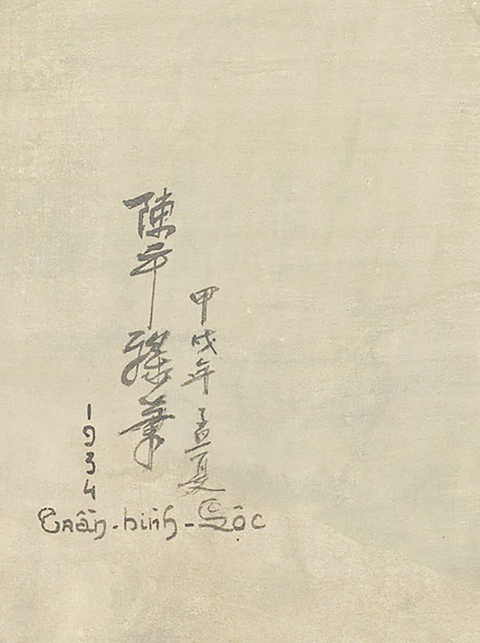 甲戌年孟夏
陳平祿筆
1934
Trần-bình-Lộc